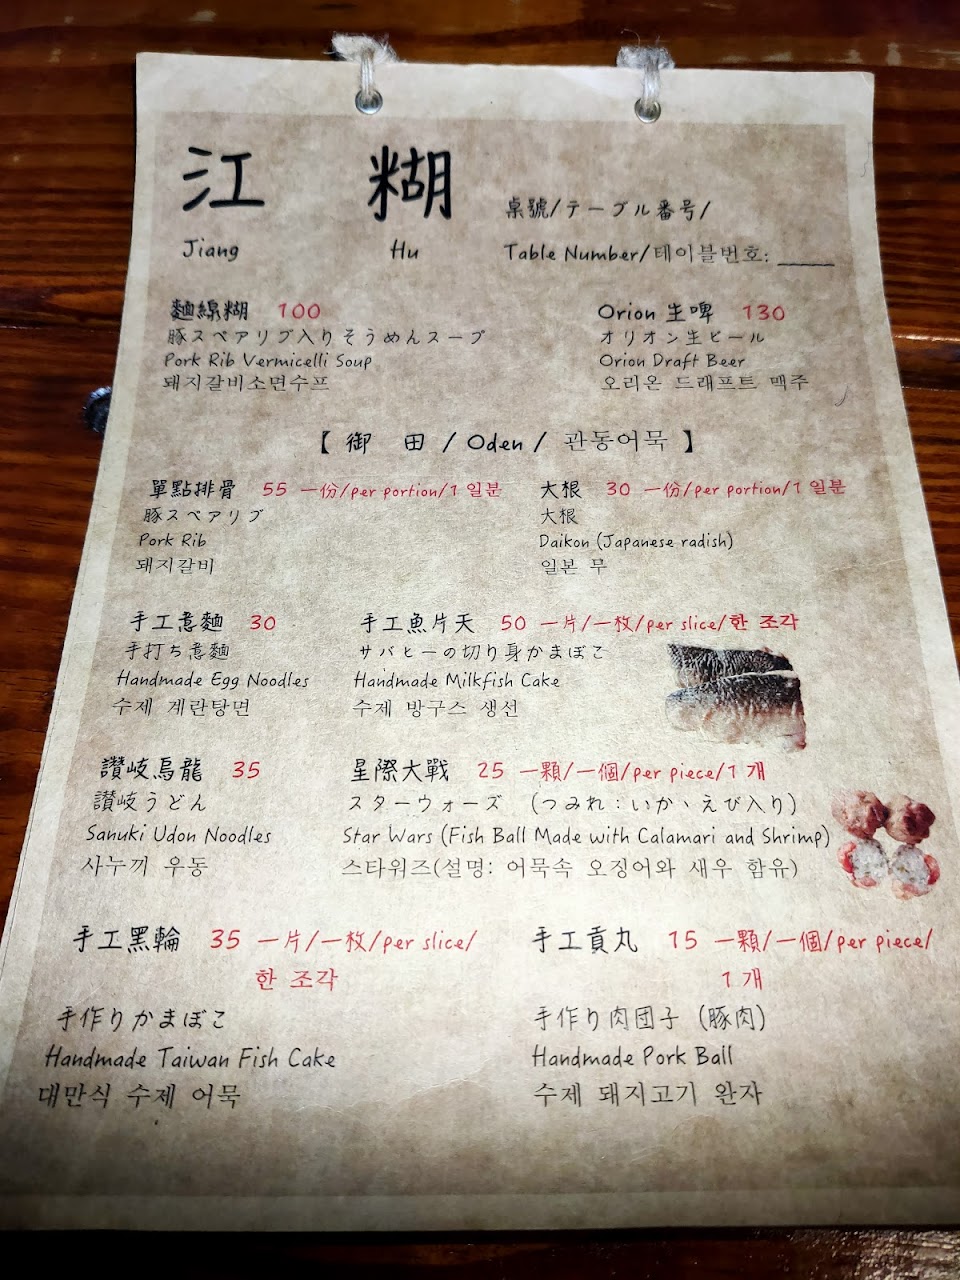 江 糊
Jiang Hu
桌號/テーブル番号/
Table Number/테이블번호: _____
麵線糊 100
豚スペアリブ入りそうめんスープ
Pork Rib Vermicelli Soup
돼지갈비소면수프
Orion 生啤 130
オリオン生ビール
Orion Draft Beer
오리온 드래프트 맥주
【 御 田 / Oden / 관동어묵 】
單點排骨 55 一份/per portion/1 일분
豚スペアリブ
Pork Rib
돼지갈비
大根 30 一份/per portion/1 일분
大根
Daikon (Japanese radish)
일본 무
手工意麵 30
手打ち意麵
Handmade Egg Noodles
수제 계란탕면
手工魚片天 50 一片/一枚/per slice/한 조각
サバヒーの切り身かまぼこ
Handmade Milkfish Cake
수제 방구스 생선
讚岐烏龍 35
讚岐うどん
Sanuki Udon Noodles
사누끼 우동
星際大戰 25 一顆/一個/per piece/1 개
スターウォーズ (つみれ:いか、えび入り)
Star Wars (Fish Ball Made with Calamari and Shrimp)
스타워즈(설명: 어묵속 오징어와 새우 함유)
手工黑輪 35 一片/一枚/per slice/
한 조각
手作りかまぼこ
Handmade Taiwan Fish Cake
대만식 수제 어묵
手工貢丸 15 一顆/一個/per piece/
1 개
手作り肉団子 (豚肉)
Handmade Pork Ball
수제 돼지고기 완자